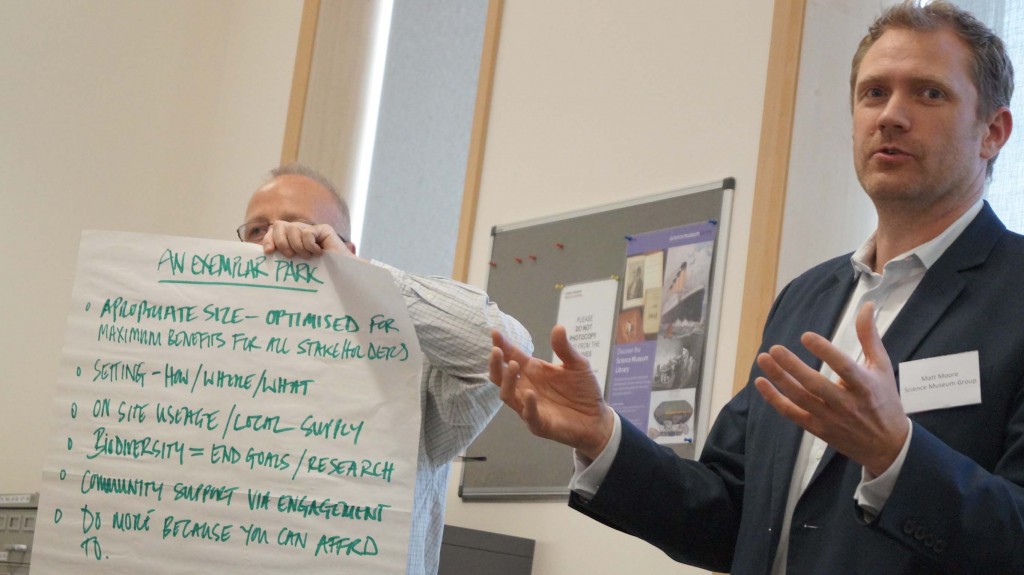 AN EXEMPLAR PARK
APROPRIATE SIZE - OPTIMISED FOR
MAXIMUM BENEFITS FOR ALL STAKEHOLDERS
SETTING - HOW/WHERE/WHAT
ON SITE USEAGE/LOCAL SUPPLY
BIODIVERSITY = END GOALS/RESEARCH
COMMUNITY SUPPORT VIA ENGAGEMENT
DO MORE BECAUSE YOU CAN AFFORD
TO.
PLEASE
DO NOT
PHOTOCOPY
FROM THE
Discover the
Science Museum
Library
Matt Moore
Science Museum Group